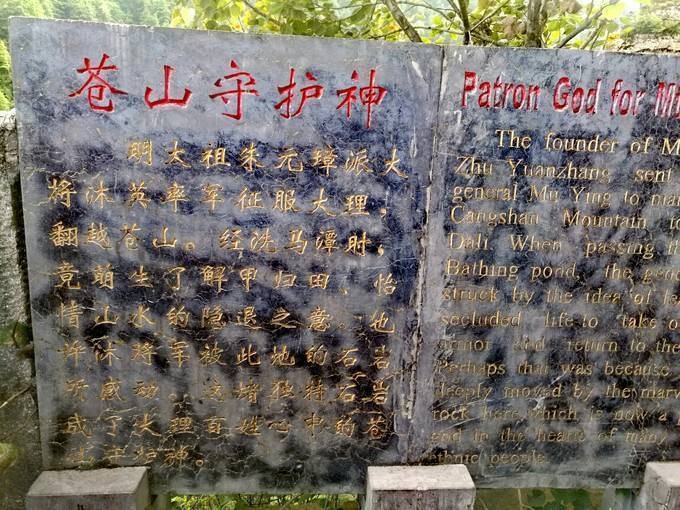 苍山守护神
明太祖朱元璋派大
将沐英率军征服大理,
翻越苍山。经洗马潭时,
竟萌生了解甲归田、怡
情山水的隐退之意。也
许沐将军被此地的石岩
所感动。这堵独特石岩
成了大理百姓心中的苍
山守护神。
Patron God for
The founder of
Zhu Yuanzhang sent
general Mu Ying to
Cangshan Mountain to
Dali. When passing
Bathing pond, the
struck by the idea of
secluded life to take
armor and return to the
Perhaps that was because
deeply moved by the
rock here, which is now a
god in the hearts of many
ethnic people.